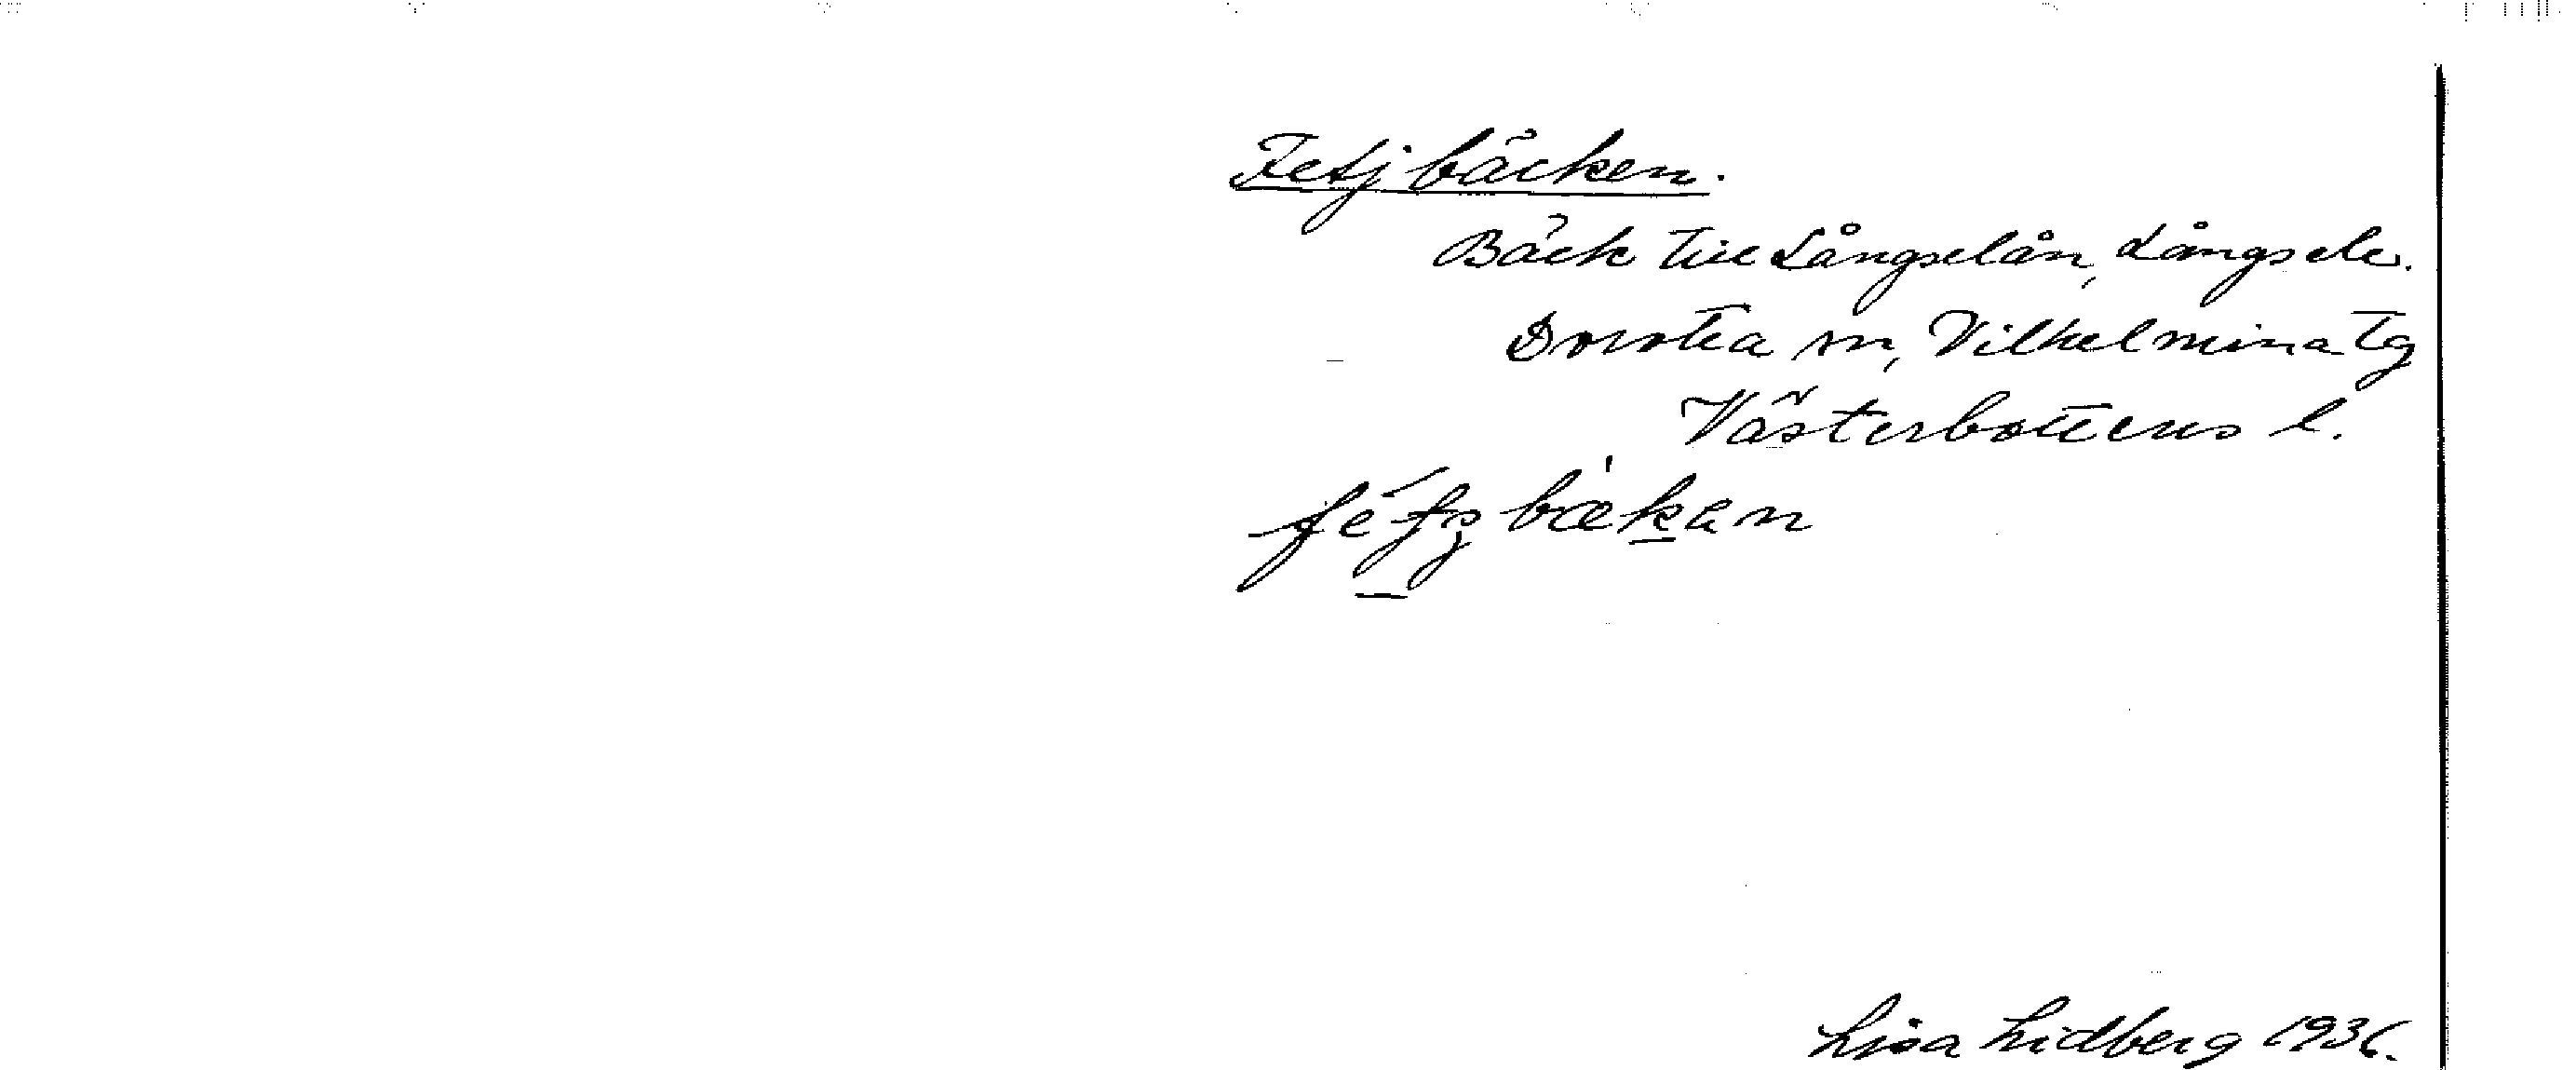 Fetjbäcken.
Bäck till Långselån, Långsele.
Dorotea sn, Vilhelmina tg
Västerbottens l.
Lisa Lidberg 1936.